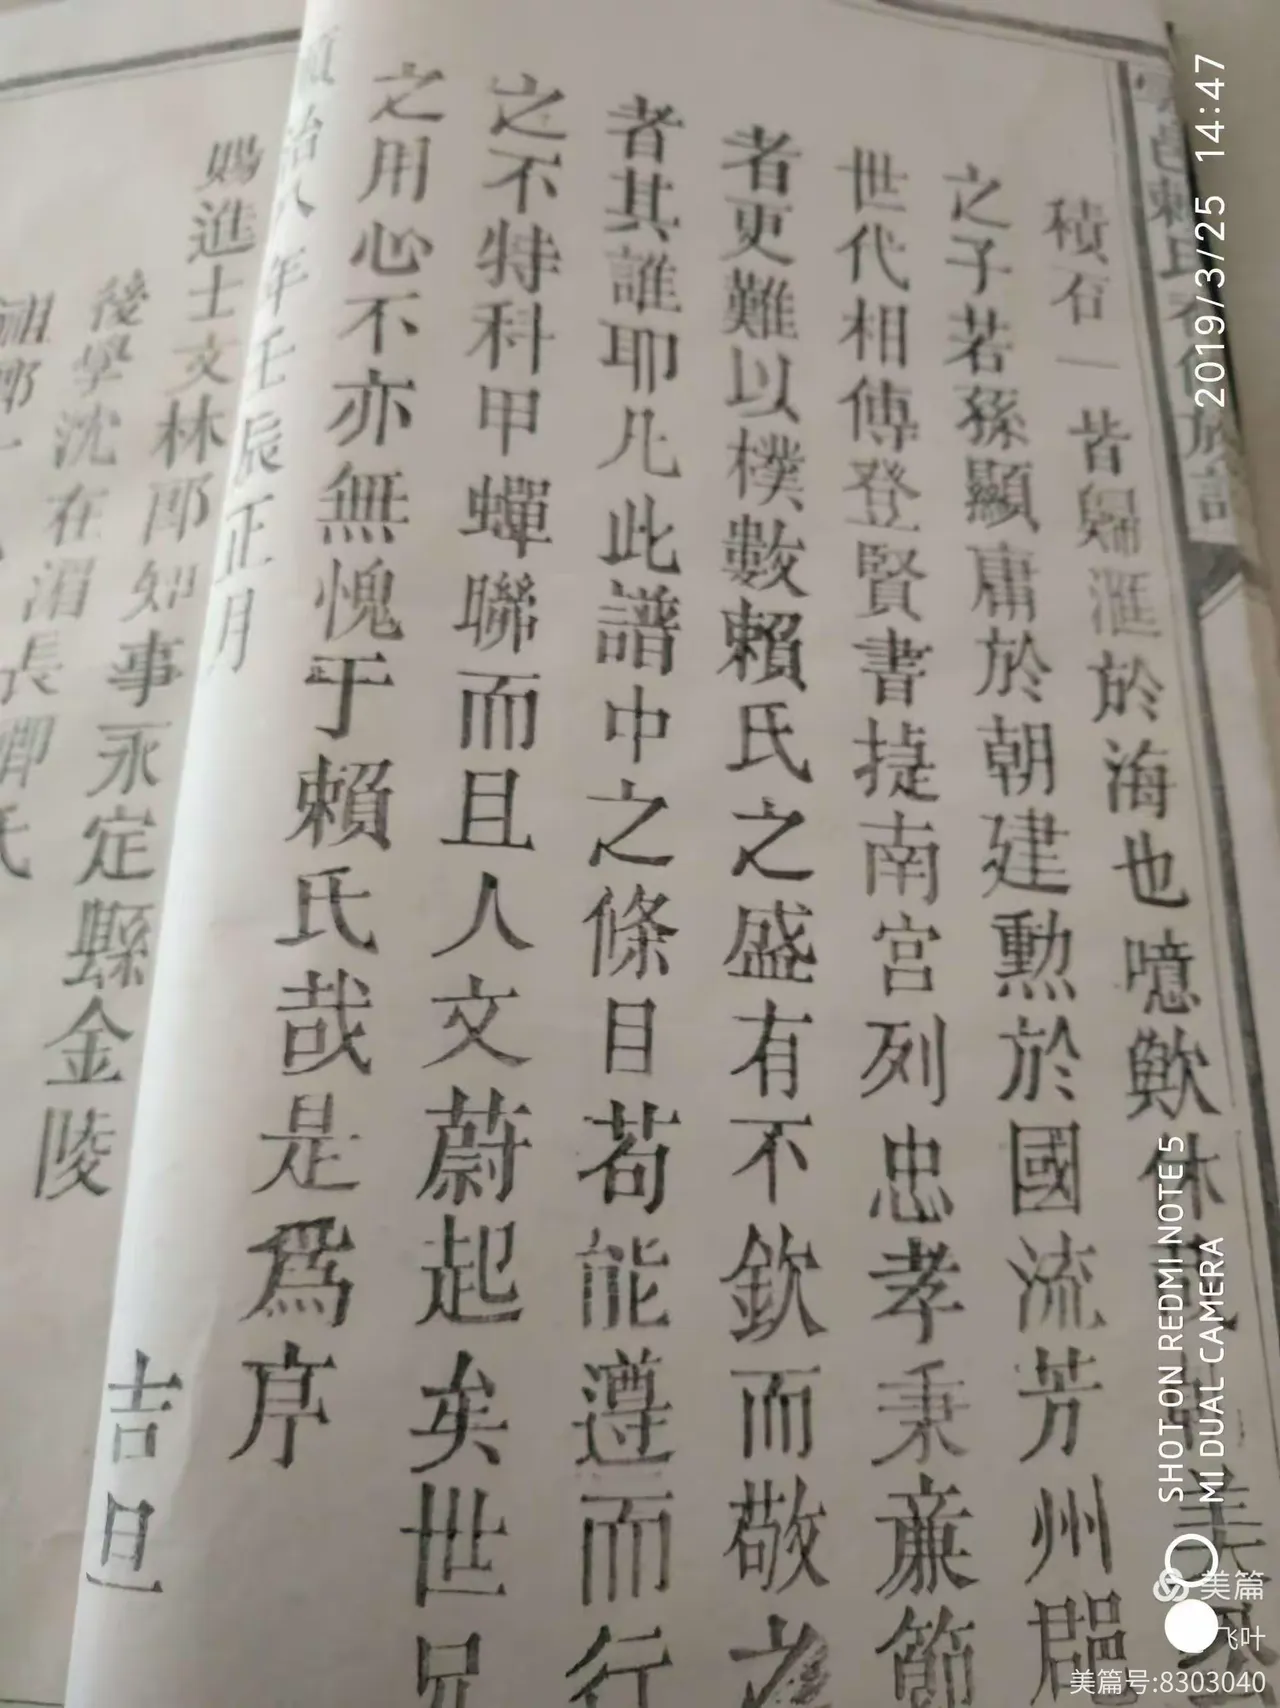 積石一皆歸滙於海也噫歟休
美
之子若孫顯庸於朝建勲於國流芳州郡
世代相傳登賢書捷南宫列忠孝秉亷節
者更難以樸數賴氏之盛有不欽而敬之
者其誰耶凡此譜中之條目苟能遵而行
之不特科甲蟬聯而且人文蔚起矣世兄
之用心不亦無愧于賴氏哉是爲序
順治八年壬辰正月
吉旦
賜進士文林郎知事永定縣金陵
後學沈在湄長卿氏
2019/3/25 14:47
SHOT ON REDMI NOTE 5
MI DUAL CAMERA
美篇
飞叶
美篇号:8303040